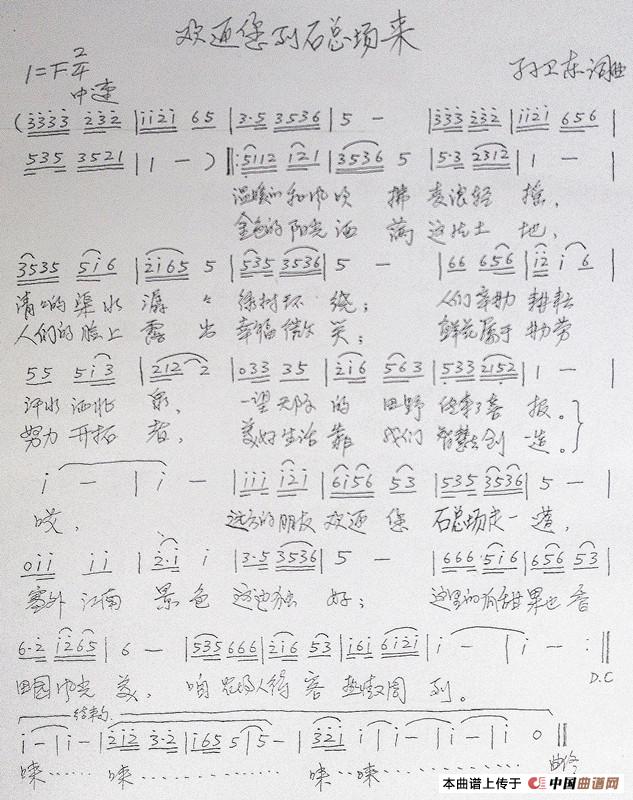 欢迎您到石总场来
1=F 2/4
中速
孙卫东词曲
(3333 232 | 1121 65 | 3·5 3536 | 5 - | 333 232 | 1121 656 |
535 3521 | 1 - ) ‖: 5112 121 | 3536 5 | 5·3 2312 | 1 - |
温暖的和风吹拂麦浪轻摇,
金色的阳光洒满这片土地,
3535 516 | 2165 5 | 535 3536 | 5 - | 66 656 | 12 1 6 |
清清的渠水潺々绿树环绕; 人们辛勤耕耘
人们的脸上露出幸福微笑; 鲜花属于勤劳
55 513 | 212 2 | 033 35 | 216 563 | 533 2152 | 1 - |
汗水洒北泉, 一望无际的田野传来了喜报。
努力开拓者, 美好生活靠我们智慧去创造。
1 - | 1 - | 111 121 | 6156 53 | 535 3536 | 5 - |
哎, 远方的朋友欢迎您石总场走一遭,
011 11 | 2·1 1 | 3·5 3536 | 5 - | 666 516 | 656 53 |
塞外江南景色这边独好; 这里的瓜甜果也香
6·2 1265 | 6 - | 535 666 | 216 53 | 161 6121 | 1 - | 1 - :‖
田园风光美, 咱农场人待客热情周到。
D.C
结束句
1 - | 1 - | 212 3·2 | 165 5 | 5 - | 321 1 | 1 - | 1 - | 1 0 ‖
来…… 来…… 来…来……
本曲谱上传于 中国曲谱网